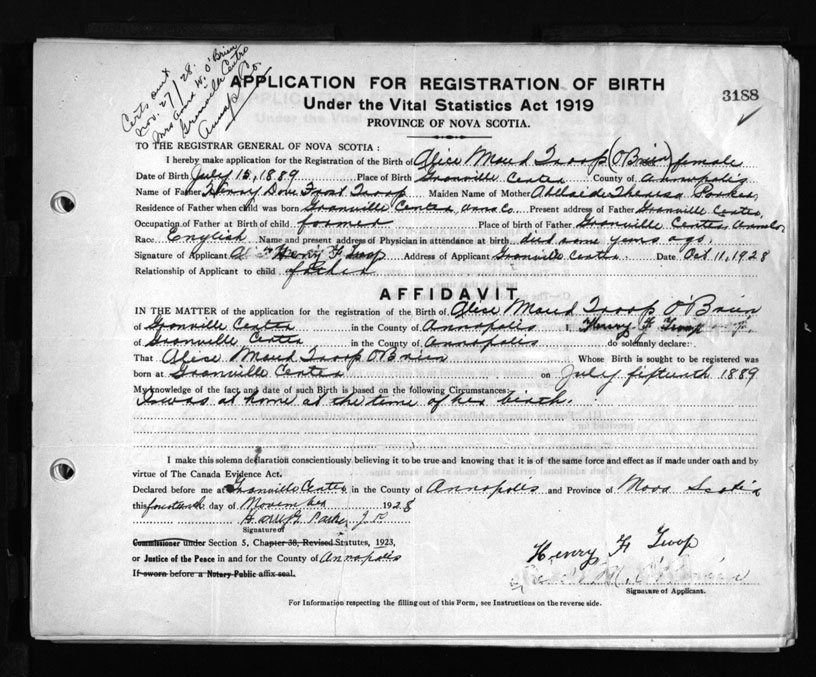 Certs sent
Nov. 27/28.
Mrs Ann W. O'Brien
Granville Centre
Annap. Co.
APPLICATION FOR REGISTRATION OF BIRTH
3188
Under the Vital Statistics Act 1919
PROVINCE OF NOVA SCOTIA.
TO THE REGISTRAR GENERAL OF NOVA SCOTIA :
I hereby make application for the Registration of the Birth of Alice Maud Troop (O'Brien) female
Date of Birth July 15, 1889 Place of Birth Granville Center County of Annapolis
Name of Father Henry Dove Frost Troop Maiden Name of Mother Adelaide Theresa Parker,
Residence of Father when child was born Granville Center, Anna Co. Present address of Father Granville Center,
Occupation of Father at Birth of child farmer Place of birth of Father Granville Center, Anna Co.
Race English Name and present address of Physician in attendance at birth died some years ago.
Signature of Applicant Henry F. Troop Address of Applicant Granville Center. Date Oct 11, 1928
Relationship of Applicant to child father
AFFIDAVIT
IN THE MATTER of the application for the registration of the Birth of Alice Maud Troop O'Brien
of Granville Center in the County of Annapolis I, Henry F Troop
of Granville Center in the County of Annapolis do solemnly declare:
That Alice Maud Troop O'Brien Whose Birth is sought to be registered was
born at Granville Center on July fifteenth 1889
My knowledge of the fact and date of such Birth is based on the following Circumstances:
I was at home at the time of her birth.
I make this solemn declaration conscientiously believing it to be true and knowing that it is of the same force and effect as if made under oath and by
virtue of The Canada Evidence Act.
Declared before me at Granville Center, in the County of Annapolis and Province of Nova Scotia
this fourteenth day of November 1928
Harry G Parker J.P.
Signature of
Commissioner under Section 5, Chapter 38, Revised Statutes, 1923,
or Justice of the Peace in and for the County of Annapolis
If sworn before a Notary Public affix seal.
Henry F Troop
Signature of Applicant.
For Information respecting the filling out of this Form, see Instructions on the reverse side.